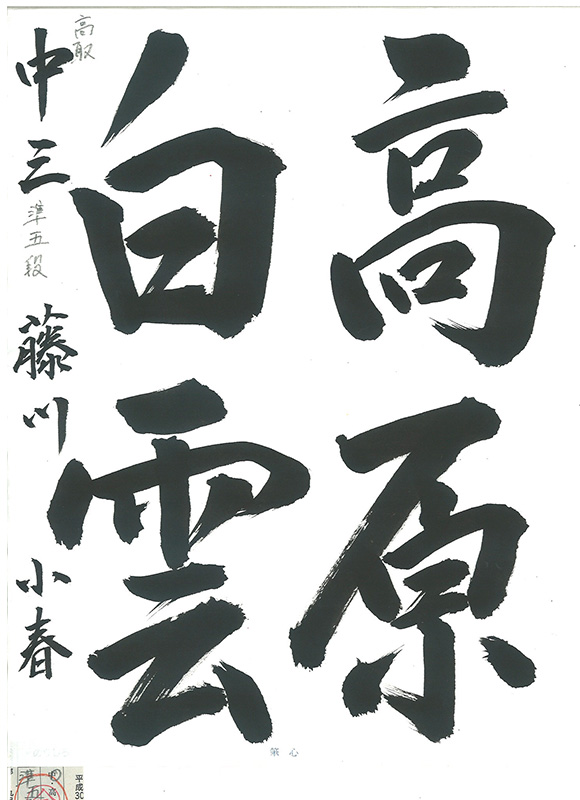 高原
白雲
高取
中三 準五段 藤川 小春
平成30
中・高
準五